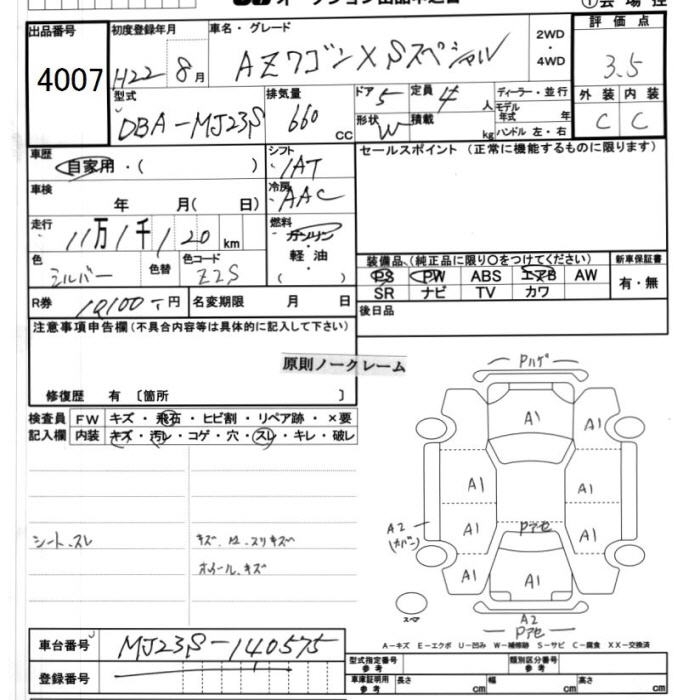 出品番号 初度登録年月 車名・グレード 2WD・4WD 評価点
4007 H22年 8月 AZワゴン XSスペシャル 3.5
型式 排気量 ドア 5 定員 4人 ディーラー・並行 外装 内装
DBA-MJ23S 660 CC 形状 W 積載 kg モデル年式 年 ハンドル 左・右 C C
車歴 自家用・( ) シフト IAT セールスポイント (正常に機能するものに限ります)
車検 年 月( 日) 冷房 AAC
走行 11万1千120km 燃料 ガソリン・軽油( )
色 シルバー 色替 色コード Z2S
装備品(純正品に限り○をつけてください) 新車保証書
PS PW ABS エアB AW 有・無
SR ナビ TV カワ
R券 10,100 円 名変期限 月 日 後日品
注意事項申告欄(不具合内容等は具体的に記入して下さい)
原則ノークレーム
修復歴 有〔箇所 〕
検査員 FW キズ・飛石・ヒビ割・リペア跡・×要
記入欄 内装 キズ・汚レ・コゲ・穴・スレ・キレ・破レ
Pハゲ
A1
A1
A1 A1
Pアセ
A1 A1
A2
(カバー)
A1 A1 A1
A2
Pアセ
シート、スレ キズ、 スリキズ
ホイール、キズ
A-キズ E-エクボ U-凹み W-補修跡 S-サビ C-腐食 XX-交換済
車台番号 MJ23S-140575
登録番号
型式指定番号 参考 類別区分番号 参考
車庫証明用 参考 長さ cm 幅 cm 高さ cm